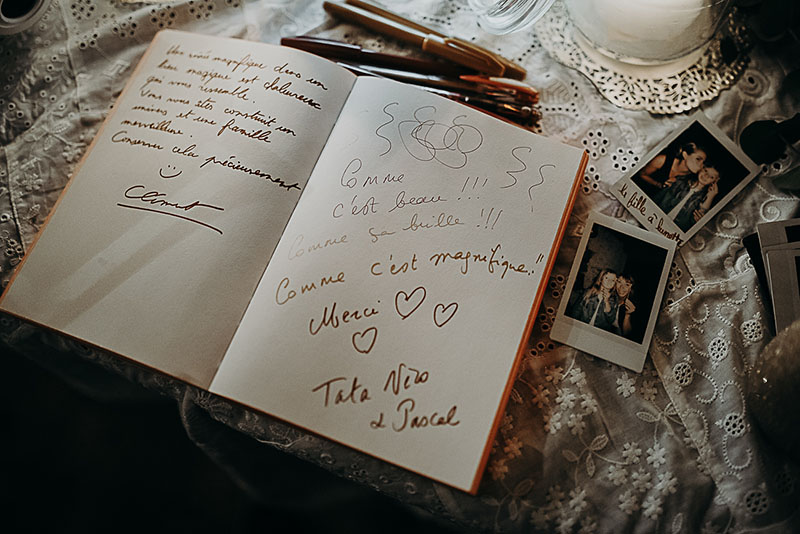 Un magnifique dans un
lieu magique et chaleureux
qui vous ressemble.
Vous vous êtes construit un
univers et une famille
merveilleuse.
Conservez cela précieusement
Clément
Comme
c'est beau !!!
Comme ça brille !!!
Comme c'est magnifique..!!
Merci
Tata Nico
& Pascal
la fille à lunettes